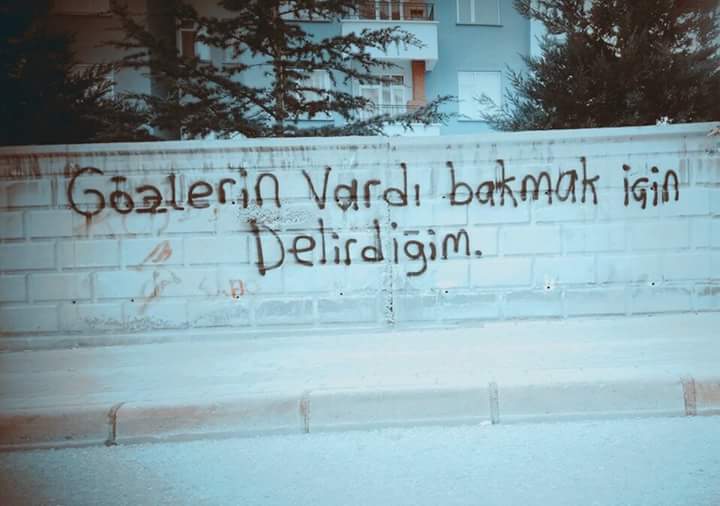 Gözlerin Vardı bakmak için
Delirdiğim.